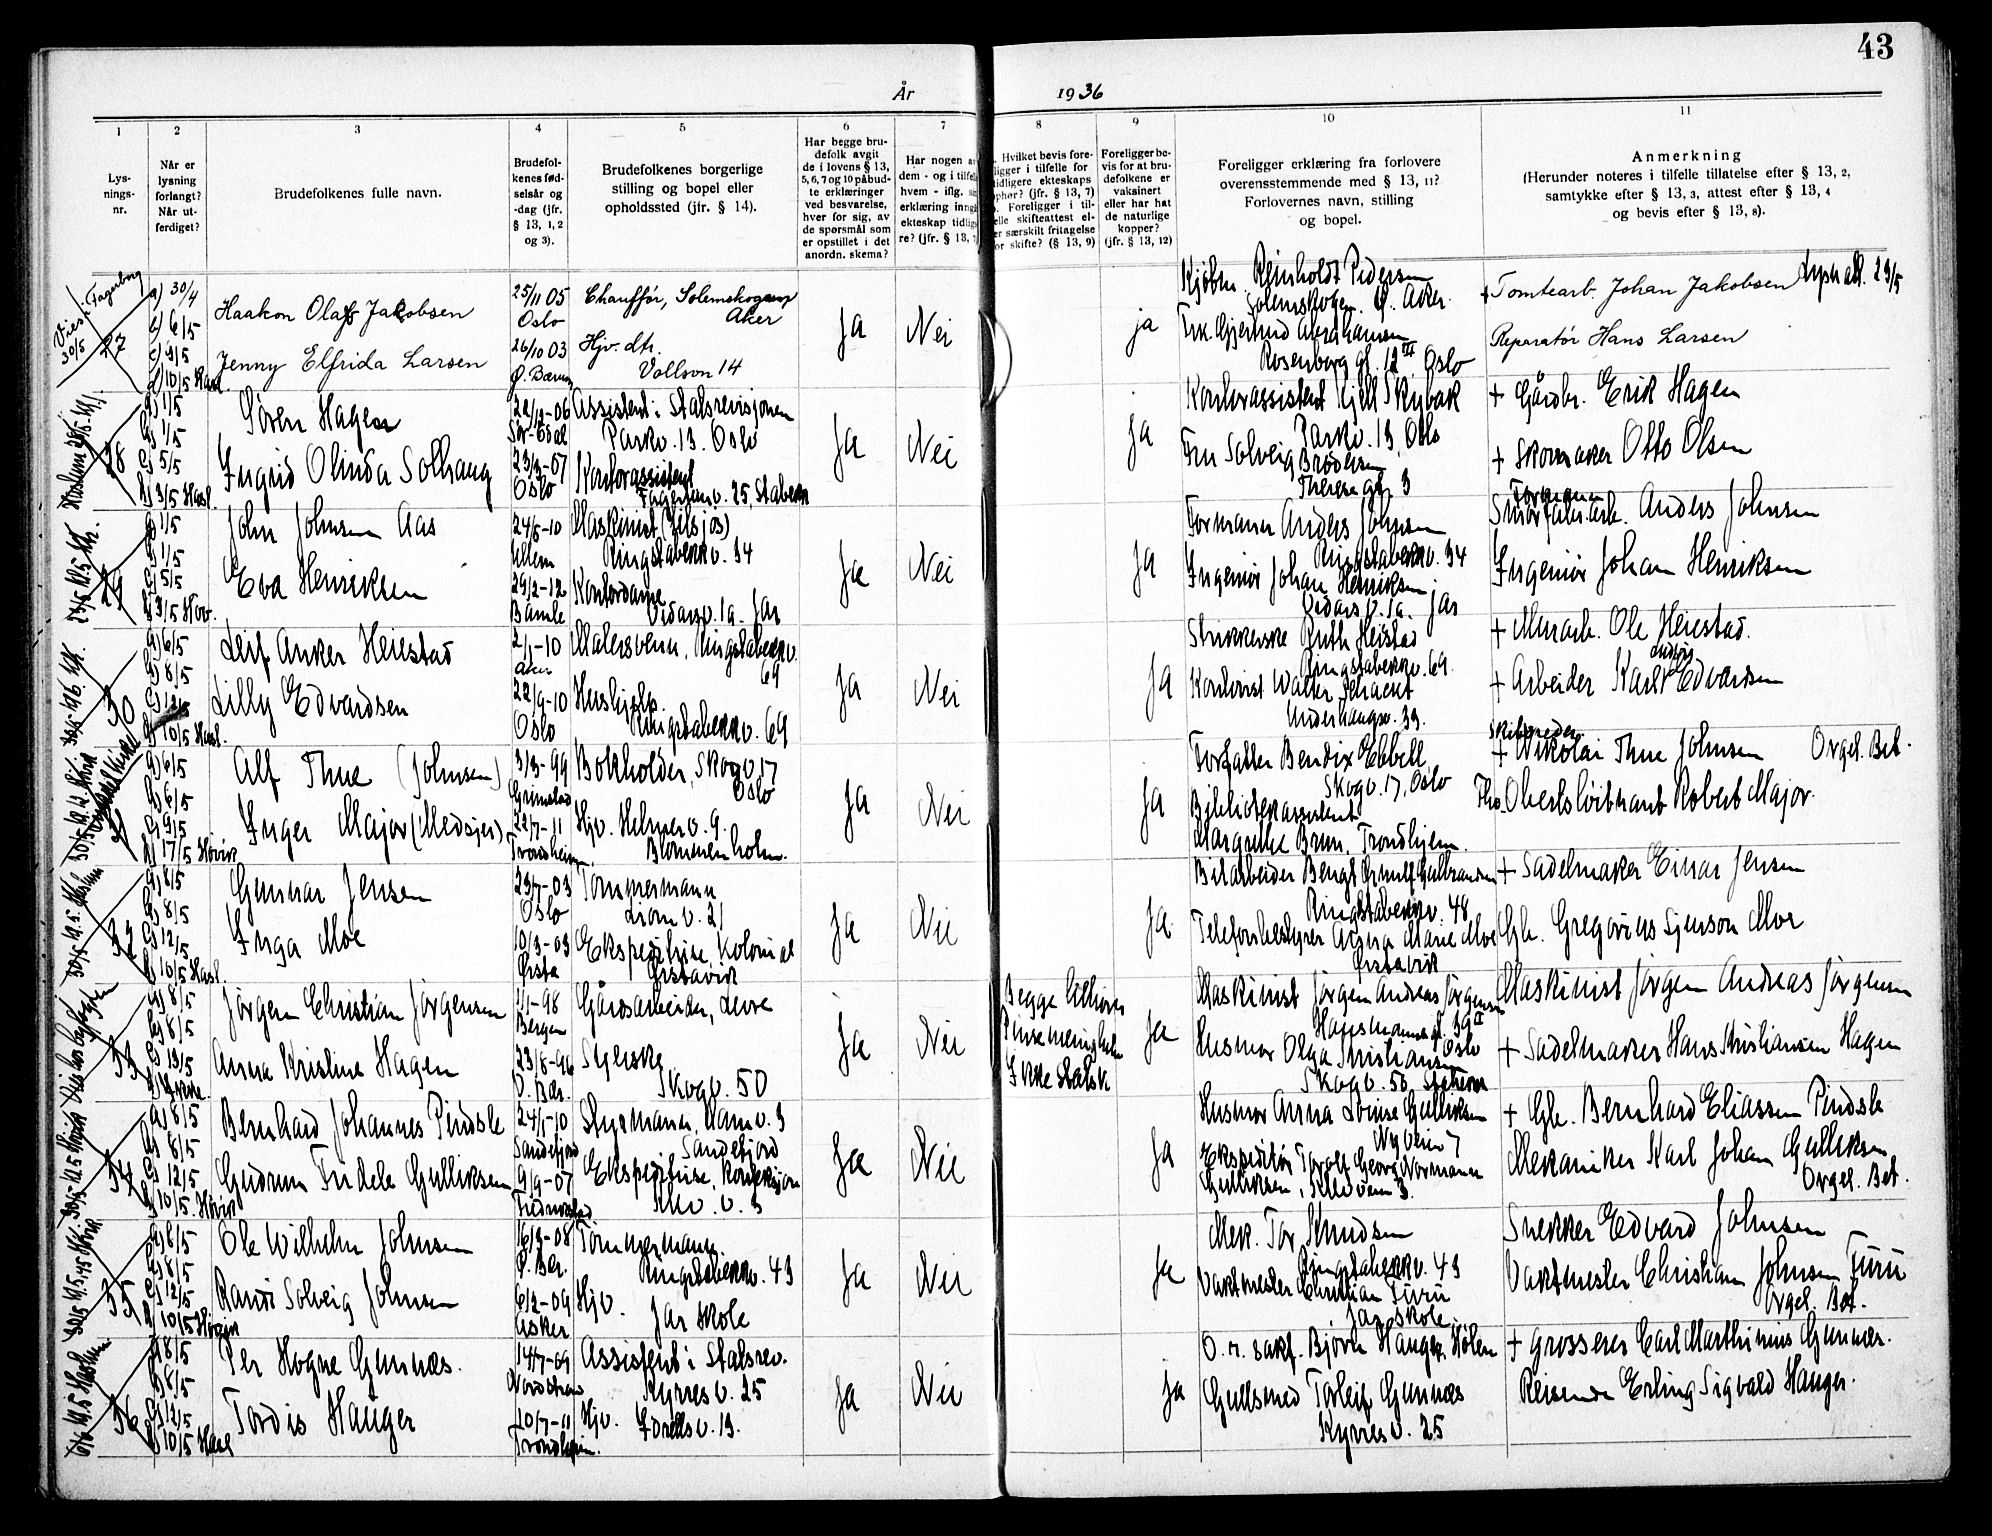 43
År 1936
1
2
3
4
5
6
7
8
9
10
11
Lys-
nings-
nr.
Når er
lysning
forlangt?
Når ut-
ferdiget?
Brudefolkenes fulle navn.
Brudefol-
kenes fød-
selsår og
-dag (jfr.
§ 13, 1, 2
og 3).
Brudefolkenes borgerlige
stilling og bopel eller
opholdssted (jfr. § 14).
Har begge bru-
defolk avgit
de i lovens § 13,
5, 6, 7 og 10 påbud-
te erklæringer
ved besvarelse,
hver for sig, av
de spørsmål som
er opstillet i det
anordn. skema?
Har nogen a
dem - og i tilfel
hvem - iflg. si
erklæring inng
ekteskap tidlig
re? (jfr. § 13, 7
Hvilket bevis fore-
ligger i tilfelle for
tidligere ekteskaps
ophør? (jfr. § 13, 7)
Foreligger i til-
elle skifteattest el-
er særskilt fritagelse
or skifte? (§ 13, 9)
Foreligger be-
vis for at bru-
defolkene er
vaksinert
eller har hat
de naturlige
kopper?
(jfr. § 13, 12)
Foreligger erklæring fra forlovere
overensstemmende med § 13, 11?
Forlovernes navn, stilling
og bopel.
Anmerkning
(Herunder noteres i tilfelle tillatelse efter § 13, 2,
samtykke efter § 13, 3, attest efter § 13, 4
og bevis efter § 13, 8).
Vies i Fagerborg
30/5
27
a) 30/4
b) 6/5
c) 9/5
d) 10/5 Hasl.
Haakon Olaf Jakobsen
Jenny Elfrida Larsen
25/11 05
Oslo
26/10 03
Ø. Bærum
Chauffør, Solemskogen
Aker
Hjv. dtr.
Vollsvn 14
Ja
Nei
ja
Kjøbm. Reinholdt Pedersen
Solemskogen. Ø. Aker.
Frk. Gjertrud Abrahamsen
Rosenborg gt. 12 III Oslo
+ Tomtearb. Johan Jakobsen
Reparatør Hans Larsen
28
a) 1/5
b) 1/5
c) 5/5
d) 3/5 Hasl.
Søren Hagen
Ingrid Olinda Solhaug
22/12-06
Sør-Odal
23/3-07
Oslo
Assistent i Statsrevisjonen
Parkv. 13. Oslo
Kontorassistent
Fagertunv. 25, Stabekk
Ja
Nei
Ja
Kontorassistent Kjell Skybak
Parkv. 13, Oslo
Fru Solveig Brodersen
Therese gt. 3
+ Gårdbr. Erik Hagen
+ Skomaker Otto Olsen
29
a) 1/5
b) 1/5
c) 5/5
d) 3/5 Høv.
John Johnsen Aas
Eva Henriksen
24/5-10
29/2-12
Bamle
Maskinist (tilsjøs)
Ringstabekkv. 34
Kontordame
Vidarsv. 1a. Jar
Ja
Nei
Ja
Formann Anders Johnsen
Ringstabekkv. 34
Ingeniør Johan Henriksen
Vidarsv. 1a. Jar
Formann
Smørfabr.arb. Anders Johnsen
Ingeniør Johan Henriksen
30
a) 6/5
b) 8/5
c) 12/5
d) 10/5 Hasl.
Leif Anker Heiestad
Lilly Edvardsen
2/1-10
Aker
22/9-10
Oslo
Malersvenn, Ringstabekkv.
69
Hushjelp.
Ringstabekkv. 69
Ja
Nei
Ja
Strikkerske Ruth Heistad
Ringstabekkv. 69.
Kontorist Walter Schacht
Underhaugsv. 33.
+ Murarb. Ole Heiestad.
Ludvig
+ Arbeider Karl Edvardsen
a) 6/5
b) 6/5
c) 9/5
d) 17/5 Høvik
Alf Thue (Johnsen)
Inger Major (Medsjer)
3/3-99
Grimstad
22/7-11
Trondheim
Bokholder, Skogv. 17
Oslo
Hjv. Helmerv. 9.
Blommenholm.
Ja
Nei
Ja
Forfatter Bendix Ebbell
Skogv. 17, Oslo
Bibliotekassistent
Margrethe Brun, Trondhjem.
Skibsreder
+ Nikolai Thue Johnsen Orgel. Bet.
Oberstløitnant Robert Major.
32
a) 8/5
b) 8/5
c) 12/5
d) 10/5 Hasl.
Gunnar Jensen
Inga Moe
23/7-03
Oslo
10/3-03
Ørsta
Tømmermann
Lionv. 21
Ekspeditrise, Kolonial
Ørstavik
Ja
Nei
Ja.
Bilarbeider Bengt Arnulf Gulbrandsen
Ringstabekkv. 48
Telefonbestyrer Anna Marie Moe
Ørstavik
+ Sadelmaker Einar Jensen
Gbr. Gregorius Sjurson Moe
33
a) 8/5
b) 8/5
c) 13/5
Jørgen Christian Jørgensen
Anna Kristine Hagen
1/1-98
Bergen
23/8-96
V. Bær.
Gårdsarbeider,
Syerske
Skogv. 50
Ja
Nei
Begge tilhører
Pinsemenigheten
Ikke Statsk
Ja
Maskinist Jørgen Andreas Jørgensen
Hausmannsgt. 39 II
Oslo
Husmor Olga Kristiansen
Skogv. 50, Stabekk
Maskinist Jørgen Andreas Jørgensen
+ Sadelmaker Hans Kristiansen Hagen
34
a) 8/5
b) 8/5
c) 12/5
d) 10/5. Høvik
Bernhard Johannes Pindsle
Gudrun Fridele Gulliksen
24/1-10
Sandefjord
9/9-07
Fredrikstad
Styrmann, Ranv. 3
Sandefjord
Ekspeditrise, Konfeksjon
Ja
Nei
Ja
Husmor Anna Lovise Gulliksen
Nyveien 7
Ekspeditør Torolf Georg Normann
Gulliksen,
+ Gbr. Bernhard Eliassen Pindsle
Mekaniker Karl Johan Gulliksen
Orgel. Bet.
35
a) 8/5
b) 8/5
c) 12/5
d) 10/5 Høvik
Ole Wilhelm Johnsen
Randi Solveig Johnsen
16/3-08
Ø. Bær.
6/2-09
Asker
Tømmermann.
Ringstabekkv. 43
Hjv.
Jar skole
Ja
Nei
Ja
Mek. Tor Knudsen
Ringstabekkv. 43
Vaktmester Christian Furu
Jar skole.
Snekker Edvard Johnsen
Vaktmester Christian Johnsen Furu
Orgel. Bet.
36
a) 8/5
b) 8/5
c) 12/5
d) 10/5 Hasl
Per Hogne Gunnæs.
Tordis Hauger
14/7-09
Nordstrand
20/7-11
Trondheim.
Assistent i Statsrev.
Kyrresv. 25
Hjv.
Idrettsv. 13.
Ja
Nei
Ja
O.r. sakf. Bjørn Hauger, Hølen
Gullsmed Torleif Gunnæs
Kyrresv. 25
+ Grosserer Carl Marthinius Gunnæs.
Reisende Erling Sigvald Hauger.